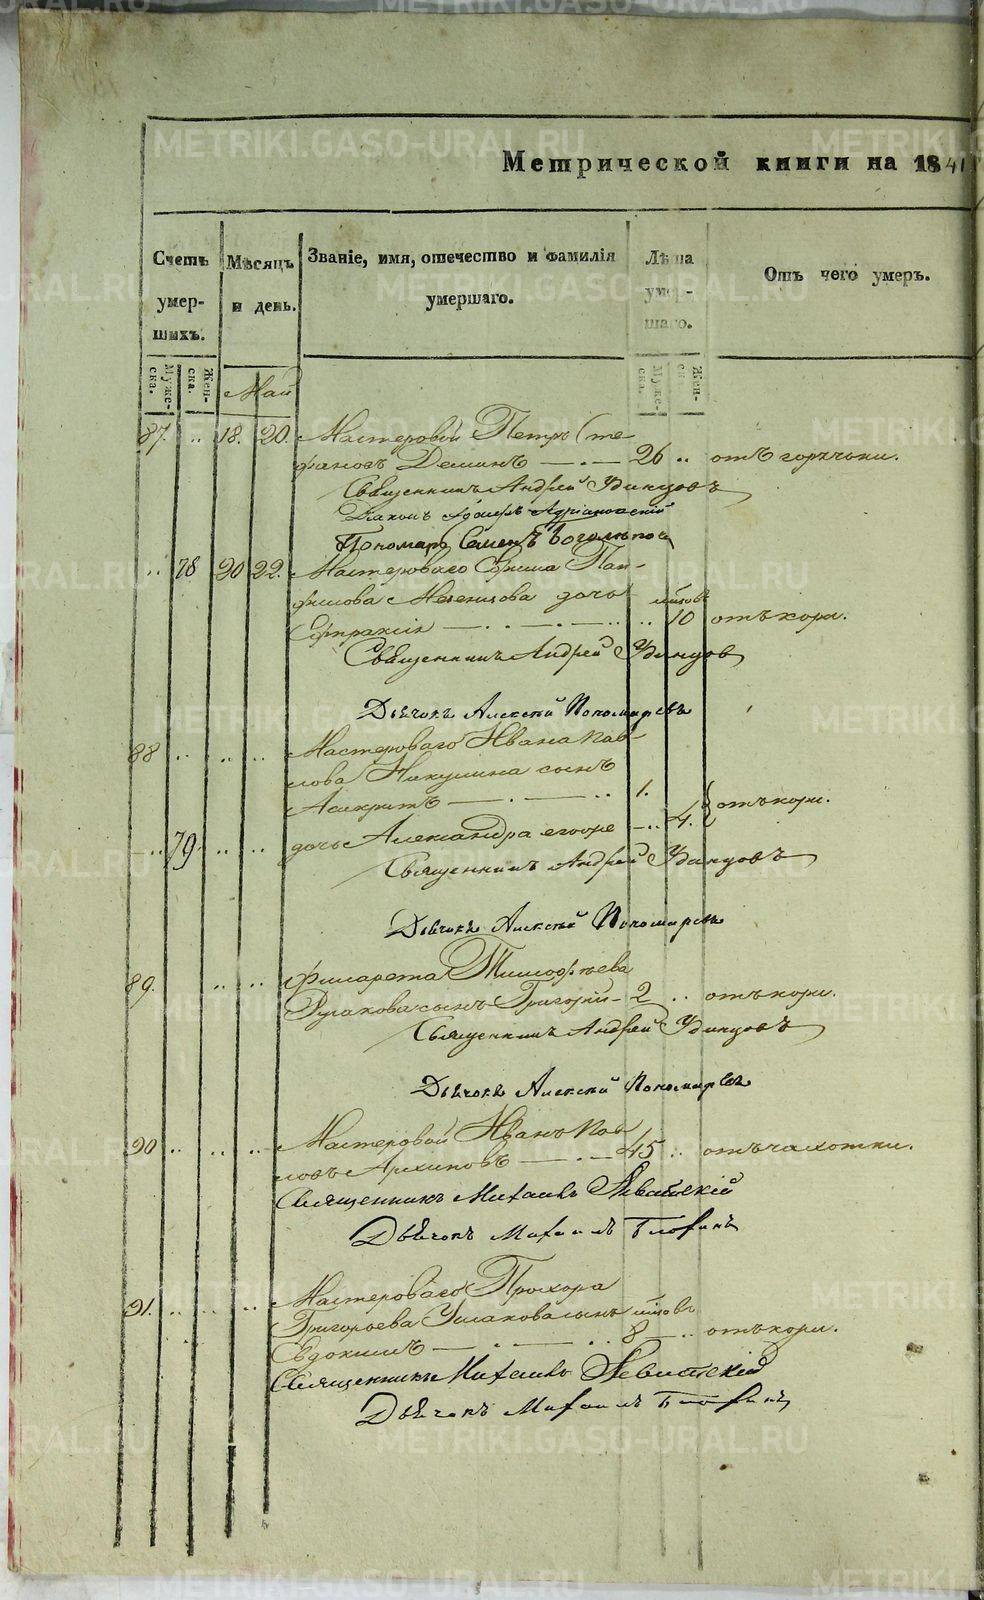 Метрической книги на 1841
Счетъ умер-шихъ.
Мѣсяцъ и день.
Званіе, имя, отечество и фамилія умершаго.
Лѣта умер-шаго.
Отъ чего умеръ.
Муже-ска.
Жен-ска.
Май
Муже-ска.
Жен-ска.
87. .. 18. 20. Мастеровой Петръ Сте-
фановъ Деминъ — 26 .. отъ горячьки.
Священникъ Андрей Удинцовъ
Діаконъ Адріановскій
Пономарь Семенъ Боголѣпов
.. 78 20 22. Мастероваго Ефима Пан-
филова дочь мѣсяцовъ
Евпраксія — .. 10 отъ кори.
Священникъ Андрей Удинцовъ
Дьячокъ Алексѣй Пономаревъ
88 .. .. .. Мастероваго Ивана Пав-
лова Никулина сынъ
Аскритъ — .. 1.
.. 79. .. .. дочь Александра егоже — .. 4. отъ кори.
Священникъ Андрей Удинцовъ
Дьячокъ Алексѣй Пономаревъ
89. .. .. Филарета Тимофѣева
Русакова сынъ Григорій — 2 .. отъ кори.
Священникъ Андрей Удинцовъ
Дьячокъ Алексѣй Пономаревъ
90 .. .. .. Мастеровой Иванъ Пав-
ловъ Архиповъ — 45 .. отъ чахотки.
Священникъ Михаилъ Левитскій
Дьячокъ Михаилъ Глофинъ
91. .. .. .. Мастероваго Прохора
Григорьева Ушакова сынъ мѣсяцовъ
Евдокимъ — .. 8 — .. отъ кори.
Священникъ Михаилъ Левитскій
Дьячокъ Михаилъ Глофинъ
METRIKI.GASO-URAL.RU